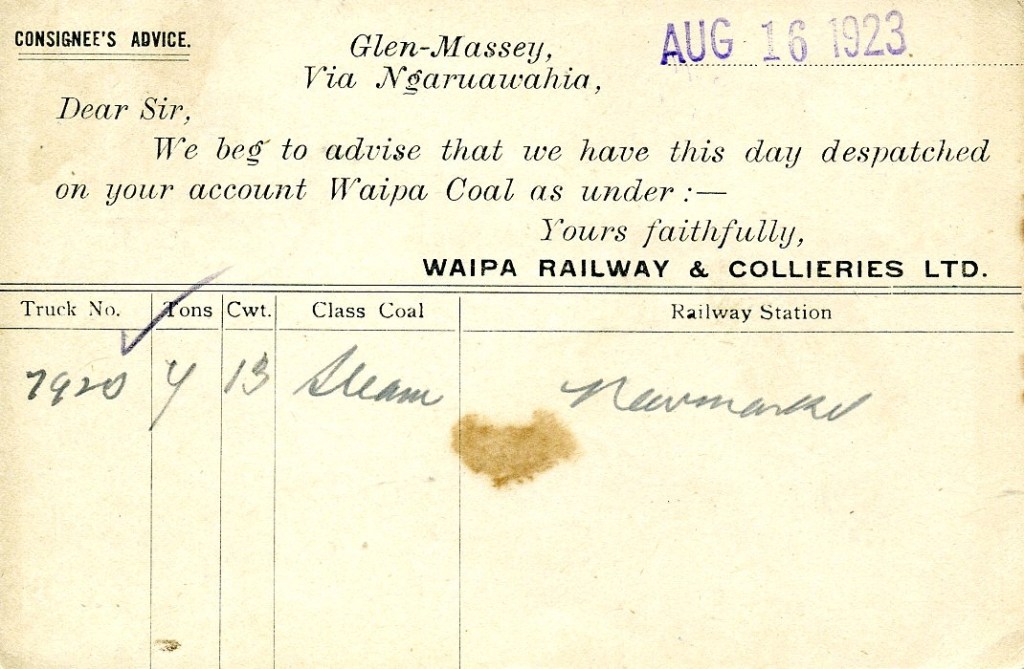 CONSIGNEE'S ADVICE.
Glen-Massey,
Via Ngaruawahia,
AUG 16 1923.
Dear Sir,
We beg to advise that we have this day despatched
on your account Waipa Coal as under :—
Yours faithfully,
WAIPA RAILWAY & COLLIERIES LTD.
Truck No. Tons Cwt. Class Coal Railway Station
7920 4 13 Steam Newmarket